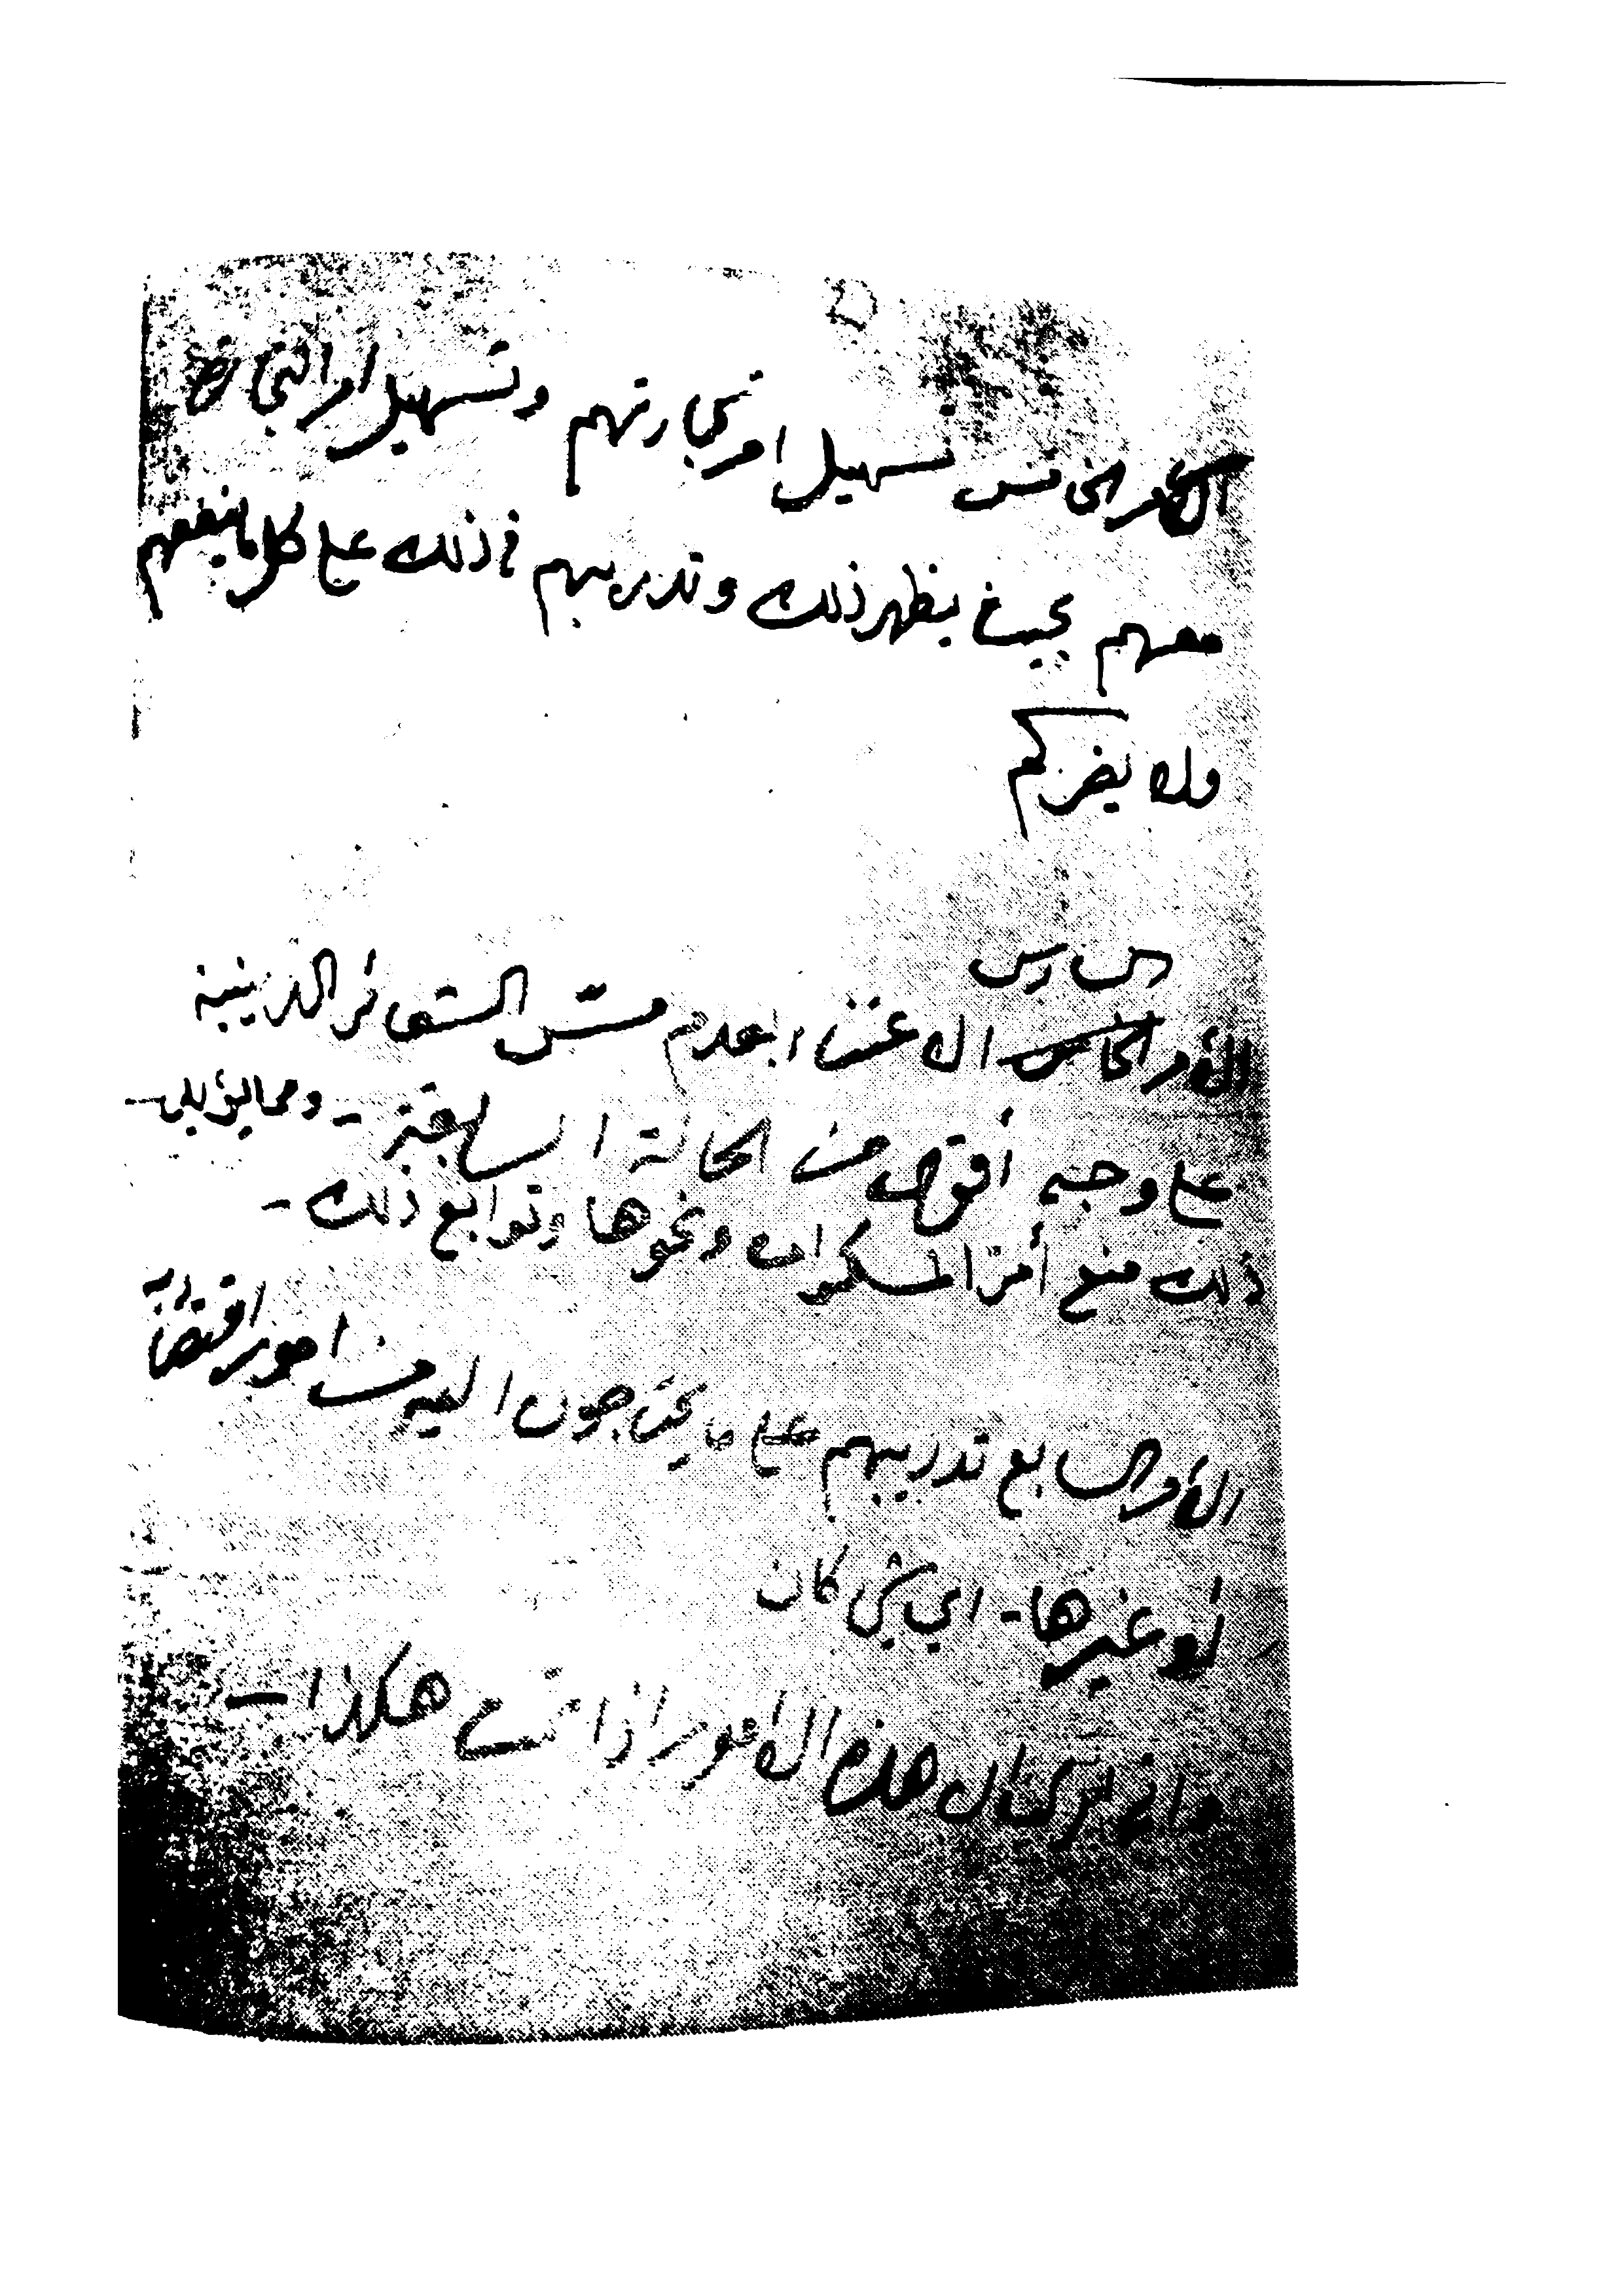 الأمر الخامس تسهيل امر تجارتهم وتسهيل امر التجارة
معهم بحيث يظهر ذلك وتدريبهم في ذلك على كل ما ينفعهم
ولا يضركم
السادس
الأمر الخامس الاعتناء بعدم مس الشعائر الدينية
على وجه أقوى من الحالة السابقة - ومما يؤيد
ذلك منع أمر المسكرات ونحوها وتوابع ذلك -
الأمر السابع تدريبهم على ما يحتاجون اليه من امور اقتصادية
أو غيرها - اي شئ كان
هذه الامور اذا تمت هكذا -